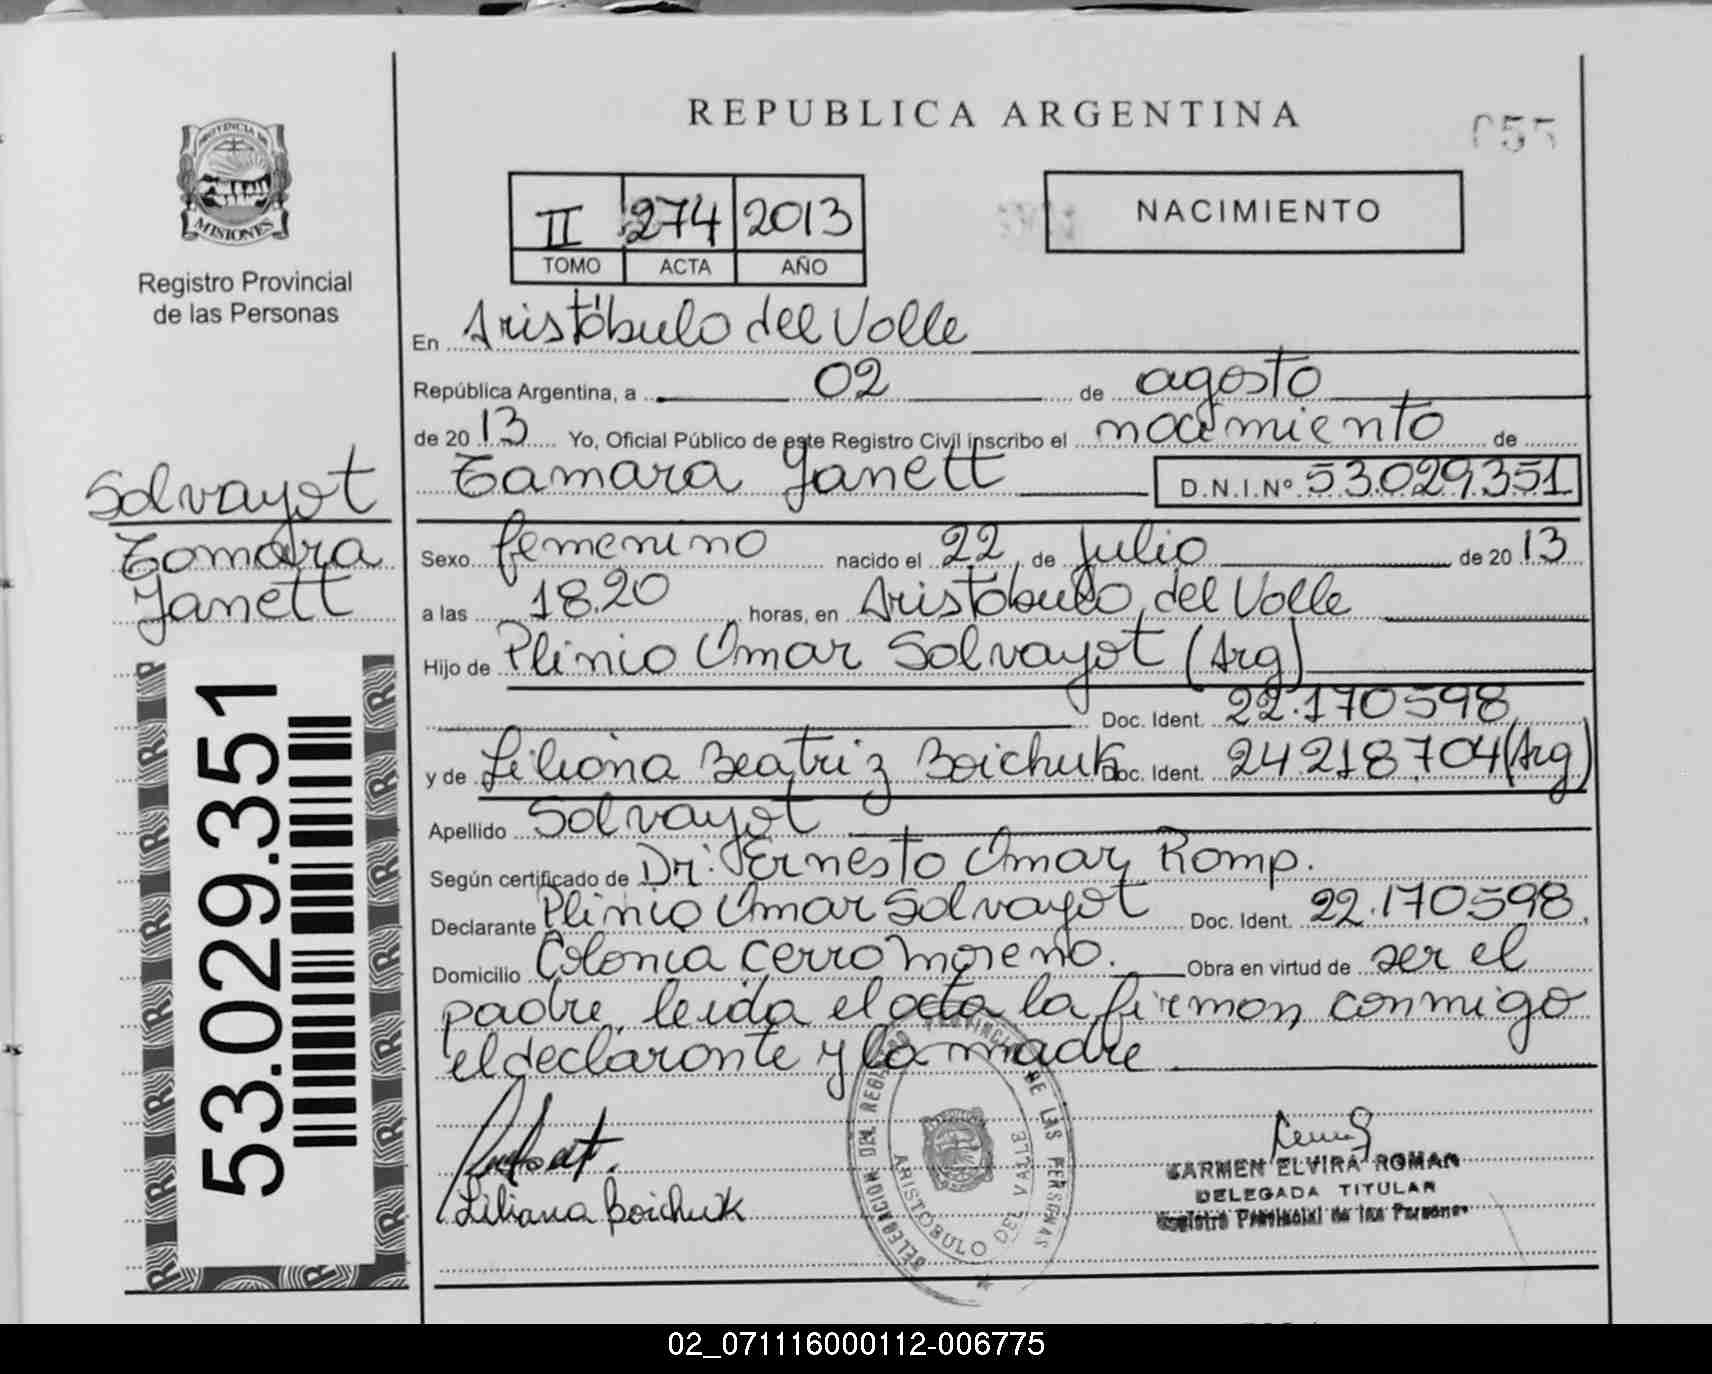 REPUBLICA ARGENTINA
055
PROVINCIA DE
MISIONES
Registro Provincial
de las Personas
II 274 2013
TOMO ACTA AÑO
NACIMIENTO
En Aristóbulo del Valle
República Argentina, a 02 de agosto
de 2013 Yo, Oficial Público de este Registro Civil inscribo el nacimiento de
Tamara Janett D.N.I.Nº 53.029.351
Salvayot
Tamara
Janett
Sexo femenino nacido el 22 de julio de 2013
a las 18.20 horas, en Aristóbulo del Valle
Hijo de Plinio Omar Salvayot (Arg)
Doc. Ident. 22.170598
y de Liliana Beatriz Boichuk Doc. Ident. 24218704 (Arg)
Apellido Salvayot
Según certificado de Dr. Ernesto Omar Romp.
Declarante Plinio Omar Salvayot Doc. Ident. 22.170598
Domicilio Colonia Cerro Moreno. Obra en virtud de ser el
padre, leida el acta la firman conmigo
el declarante y la madre
53.029.351
Liliana Boichuk
DELEGACION DEL REGISTRO PROVINCIAL DE LAS PERSONAS
ARISTOBULO DEL VALLE
CARMEN ELVIRA ROMAN
DELEGADA TITULAR
Registro Provincial de las Personas
02_071116000112-006775